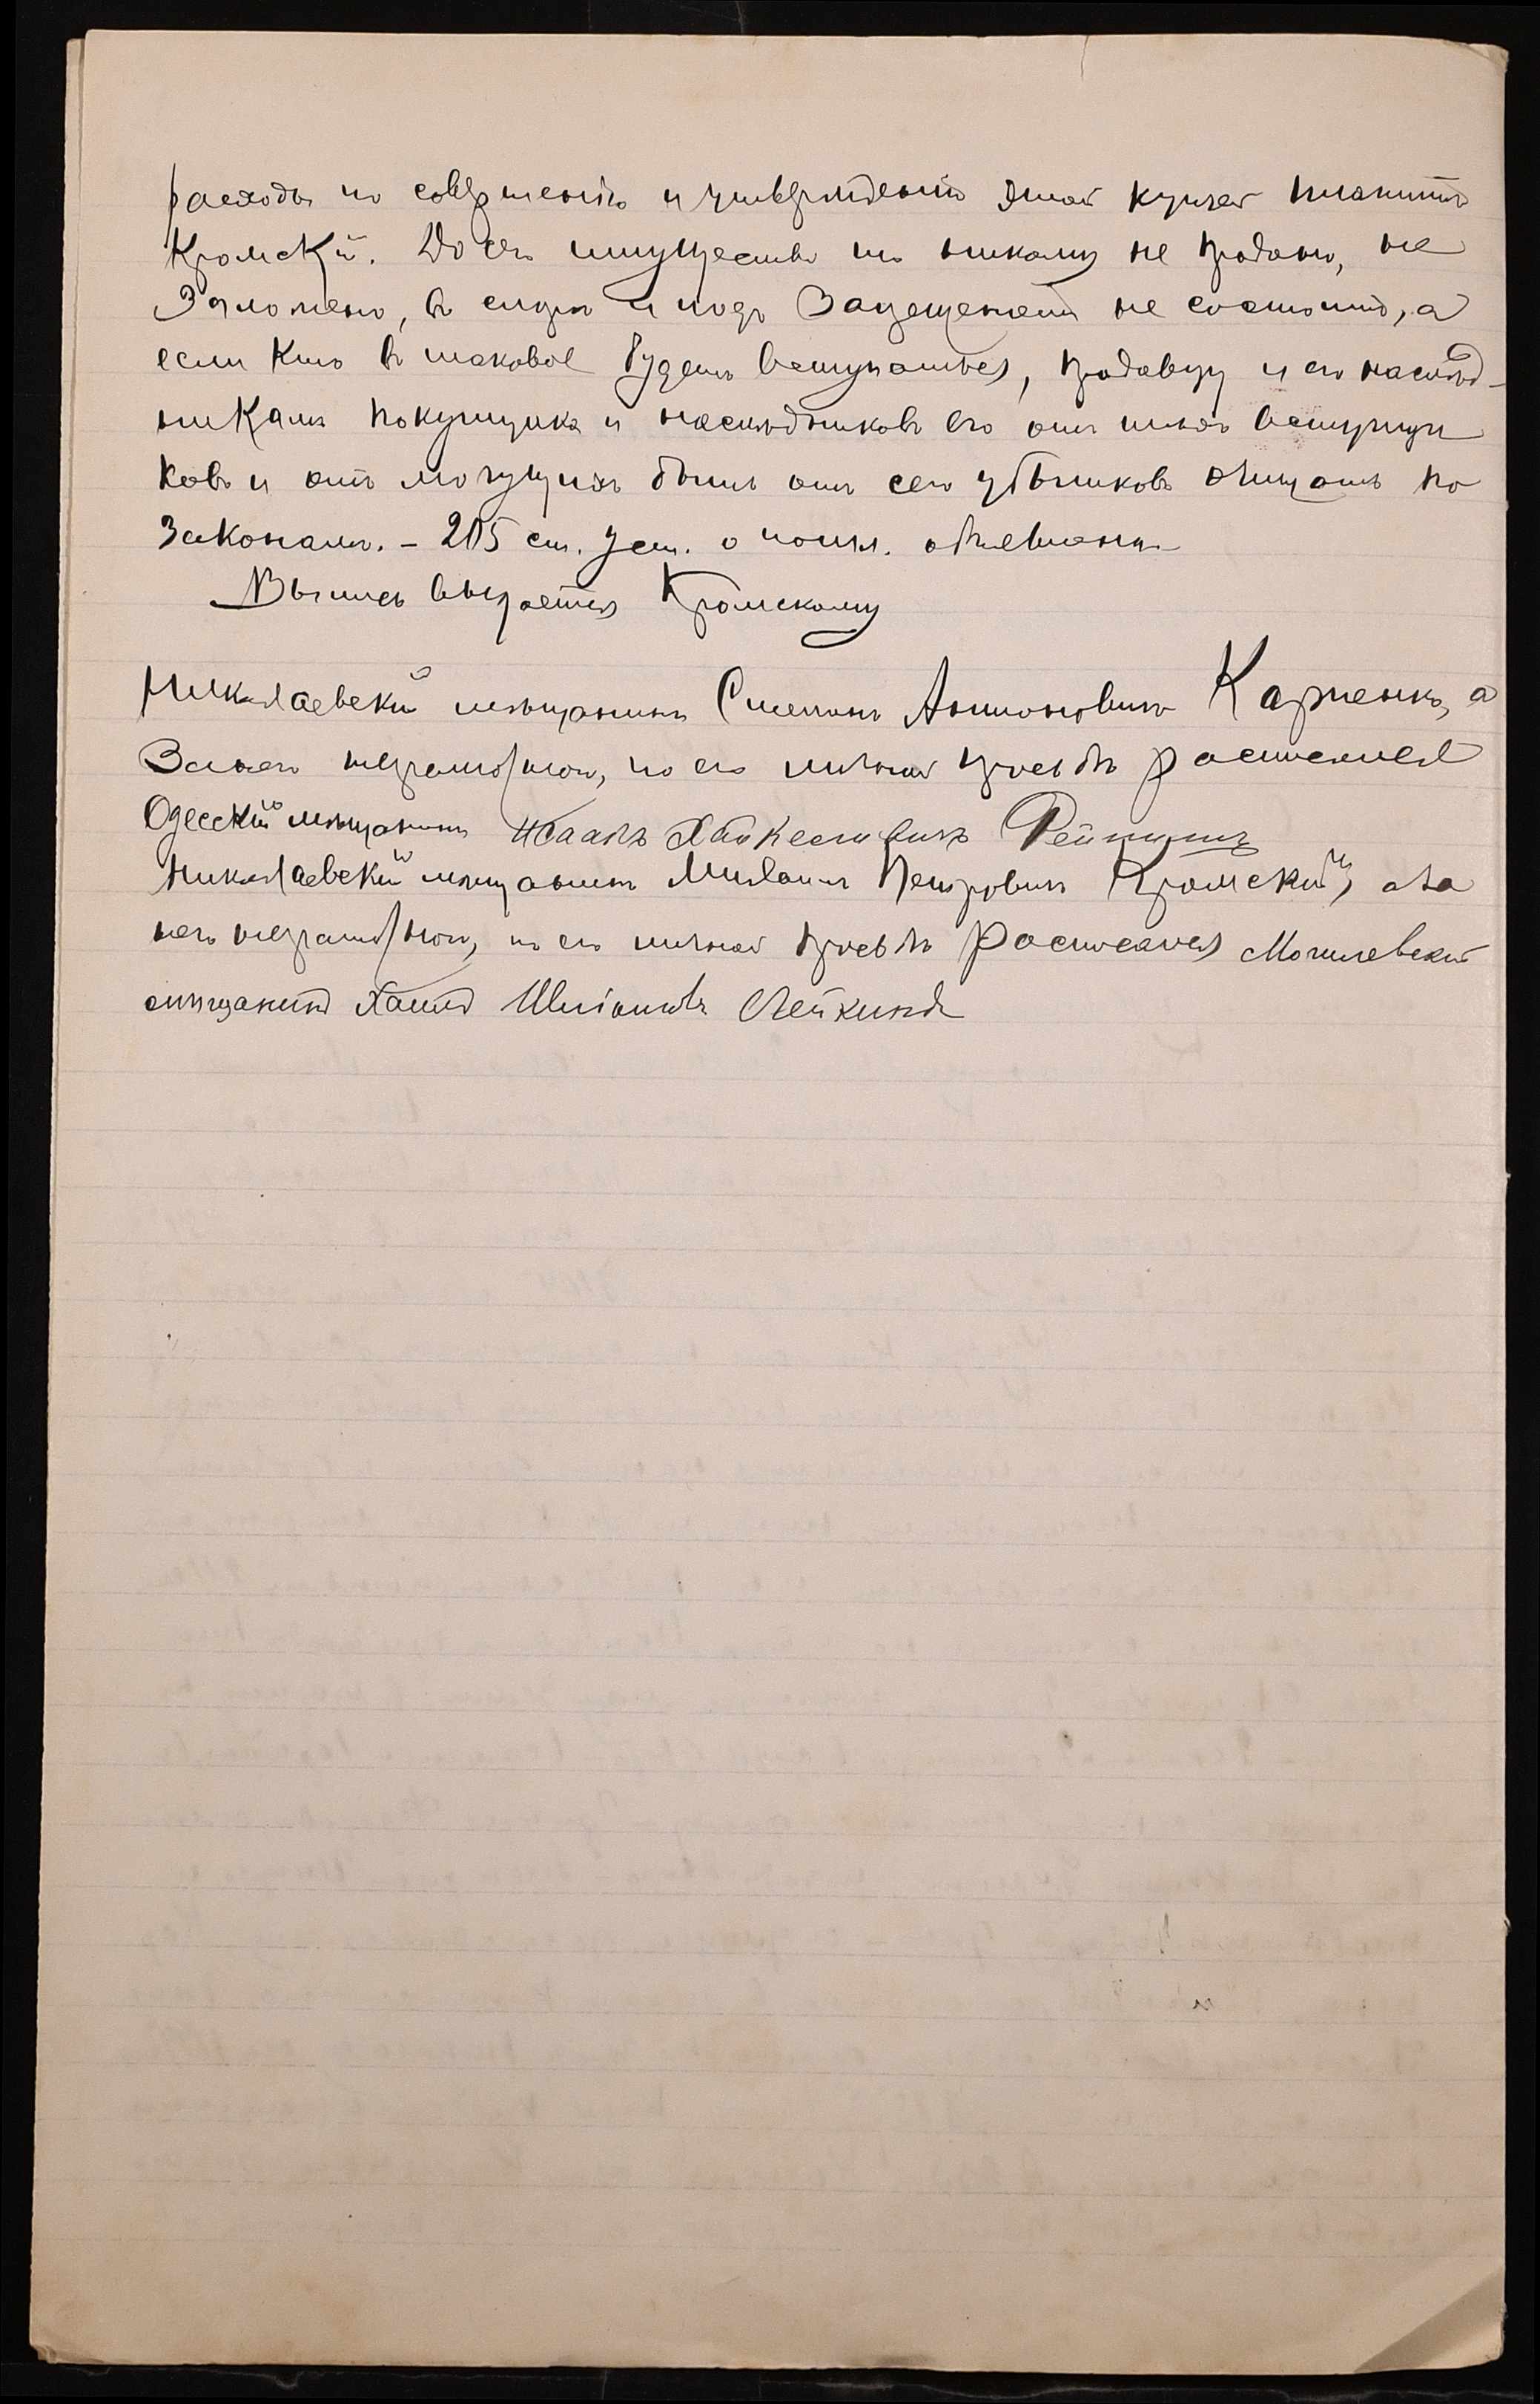 расходы по совершенію и утвержденію этой купчей платитъ
Кромскій. До сего имущество то никому не продано, не
заложено, въ спорѣ и подъ запрещеніемъ не состоитъ, а
если кто въ таковое будетъ вступаться, продавцу и его наслѣд-
никамъ покупщика и наслѣдниковъ его отъ тѣхъ вступщи
ковъ и отъ могущихъ быть отъ сего убытковъ очищать по
законамъ. – 205 ст. Уст. о пошл. объявлена
Выпись выдается Кромскому
Николаевскій мѣщанинъ Степанъ Антоновичъ Карпенко, а
за него неграмотного, по его личной просьбѣ расписался
Одесскій мѣщанинъ Исаакъ
Николаевскій мѣщанинъ Михаилъ Петровичъ Кромскій, а за
него неграмотного, по его личной просьбѣ расписался Могилевскій
мѣщанинъ Хаимъ Лейкинъ